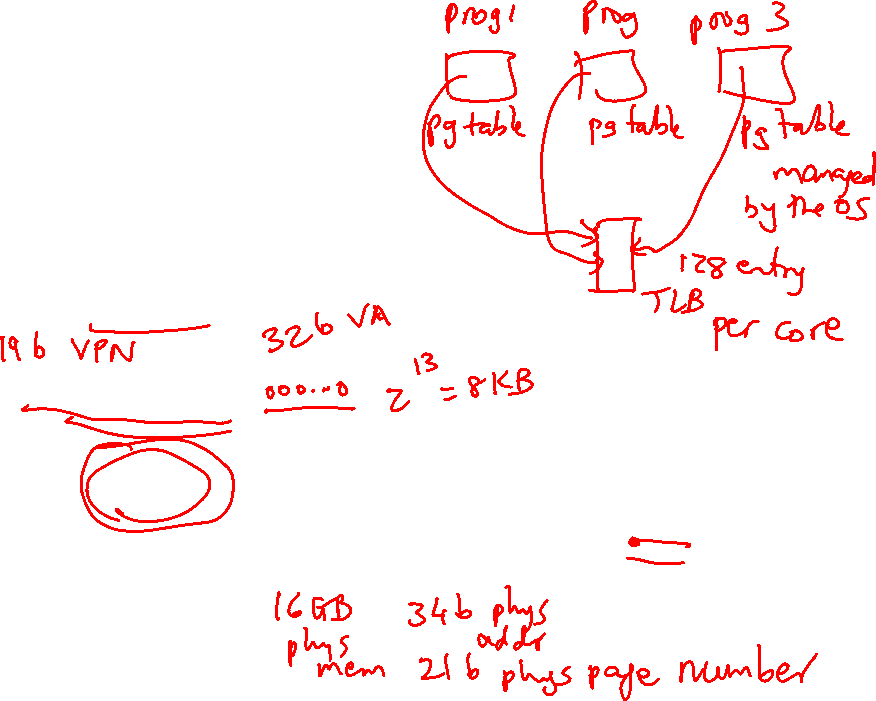 prog 1 prog prog 3
pg table pg table pg table
managed
by the OS
128 entry
TLB
per core
19 b VPN 32 b VA
000...0 2^13 = 8 KB
16 GB 34 b phys
phys addr
mem 21 b phys page number